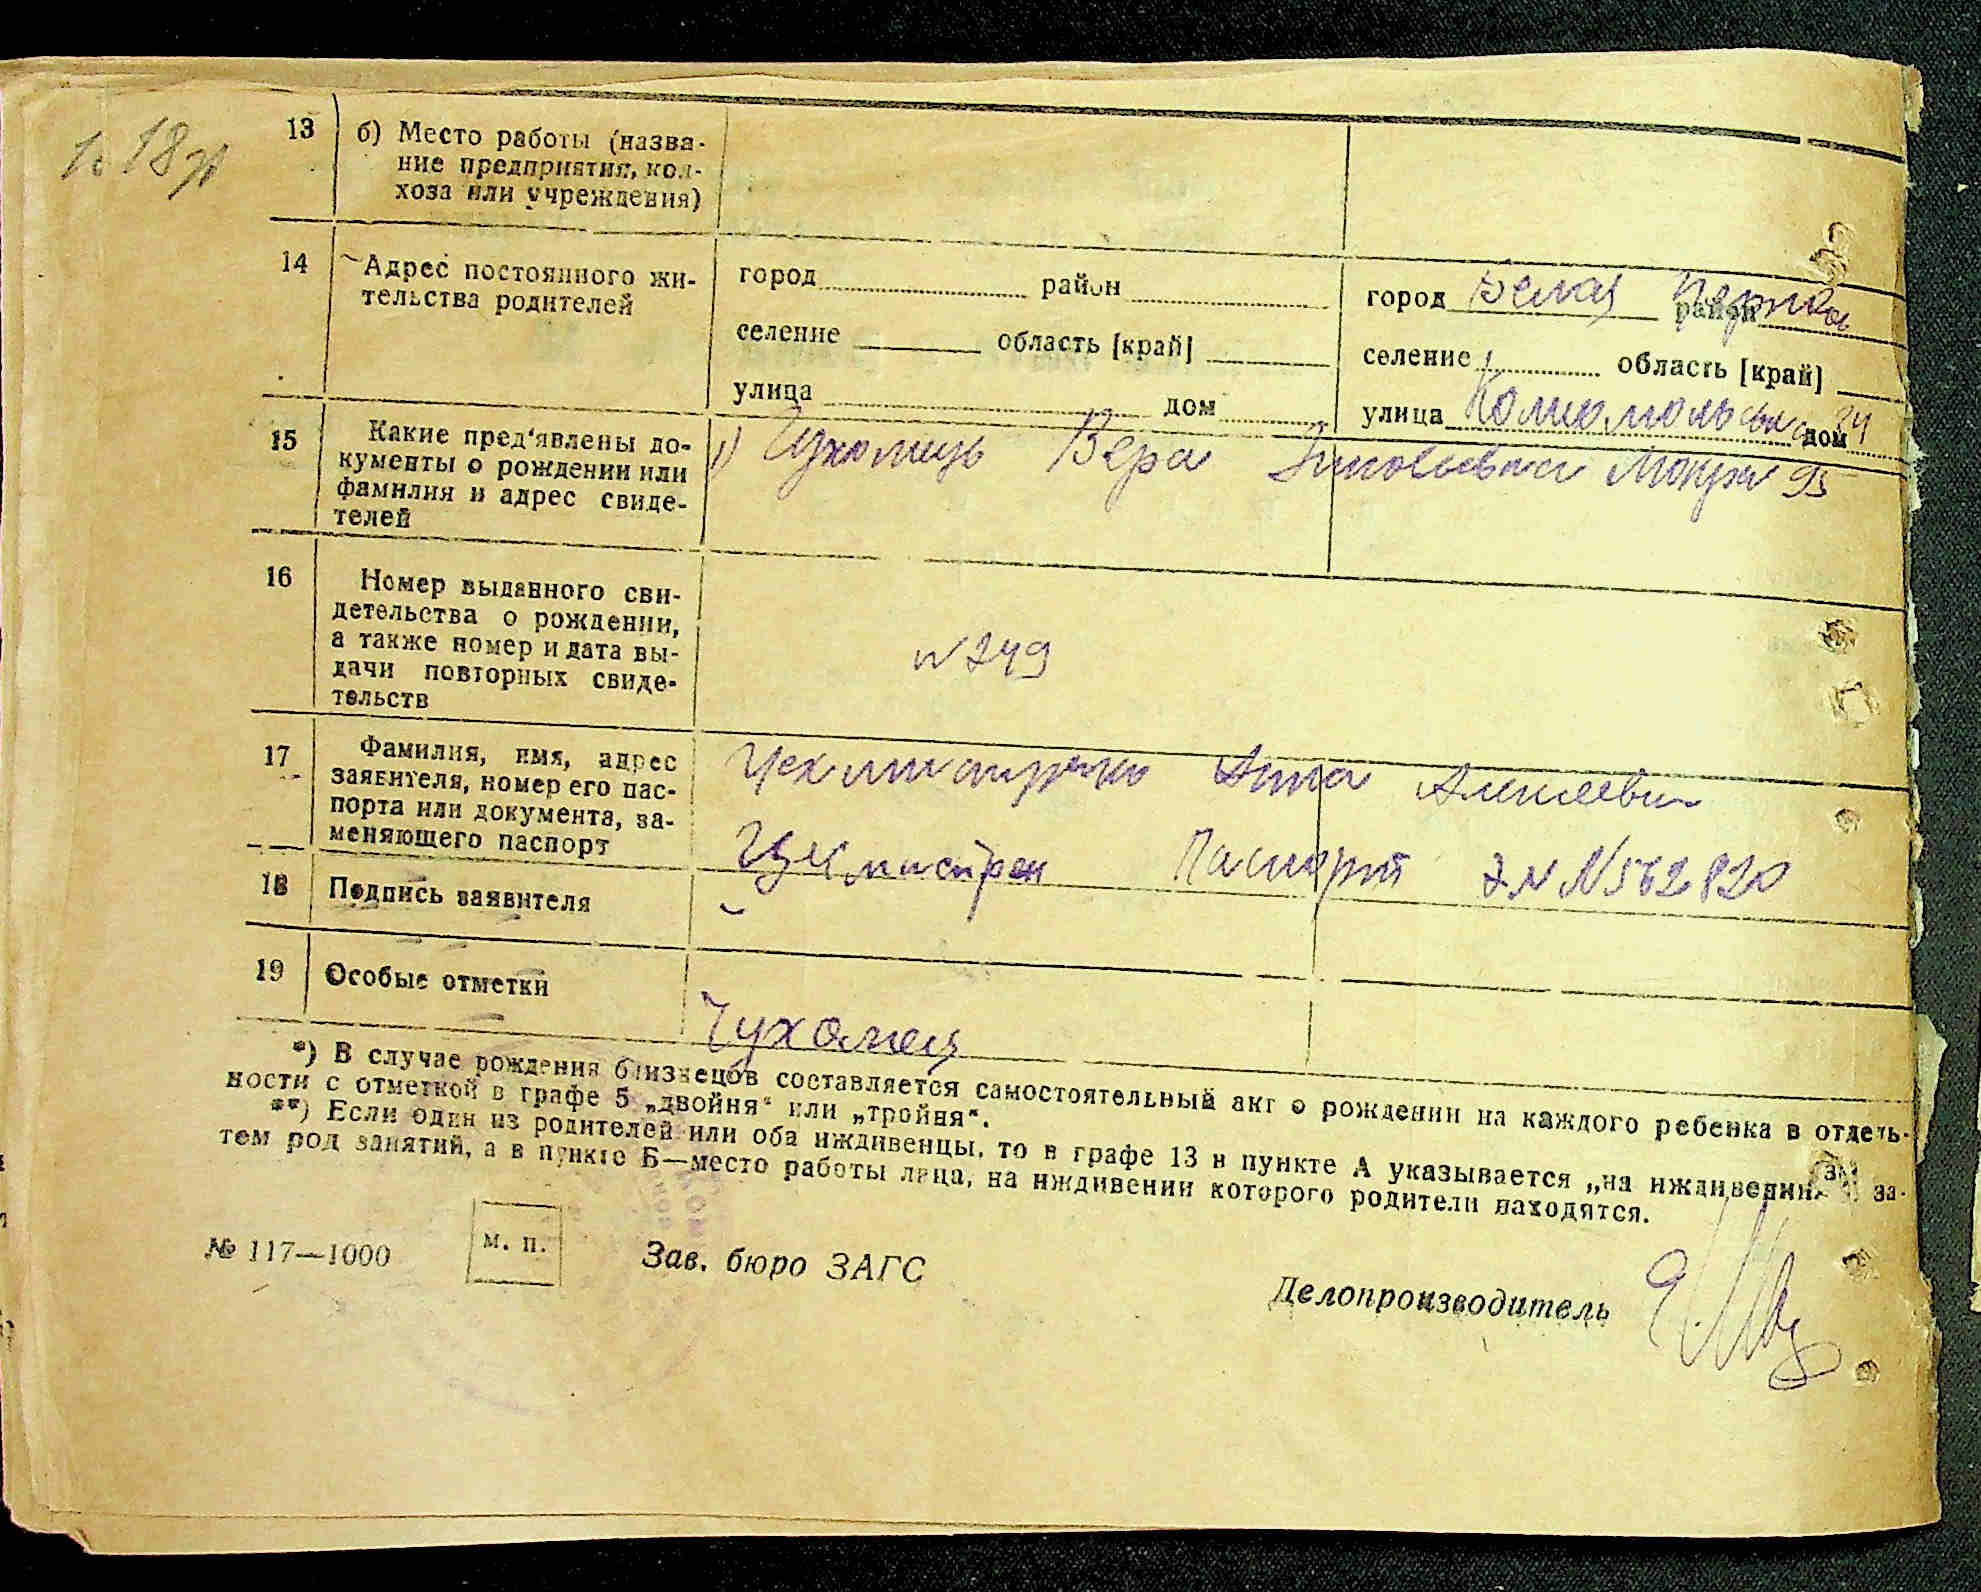 13 б) Место работы (назва-
ние предприятия, кол-
хоза или учреждения)
14 Адрес постоянного жи-
тельства родителей
город район
селение область [край]
улица дом
город Белая Церковь район
селение область [край]
улица Комсомольская дом 24
15 Какие пред'явлены до-
кументы о рождении или
фамилия и адрес свиде-
телей
1) Чухолиць Вера Мопра 95
16 Номер выданного сви-
детельства о рождении,
а также номер и дата вы-
дачи повторных свиде-
тельств
N 249
17 Фамилия, имя, адрес
заявителя, номер его пас-
порта или документа, за-
меняющего паспорт
Цехмистренко Анна Алексеевна
Паспорт N 562820
18 Подпись заявителя
Цехмистрен
19 Особые отметки
Чухолец
*) В случае рождения близнецов составляется самостоятельный акт о рождении на каждого ребенка в отдель-
ности с отметкой в графе 5 „двойня“ или „тройня“.
**) Если один из родителей или оба иждивенцы, то в графе 13 в пункте А указывается „на иждивении“ за-
тем род занятий, а в пункте Б—место работы лица, на иждивении которого родители находятся.
№ 117—1000
м. п.
Зав. бюро ЗАГС
Делопроизводитель